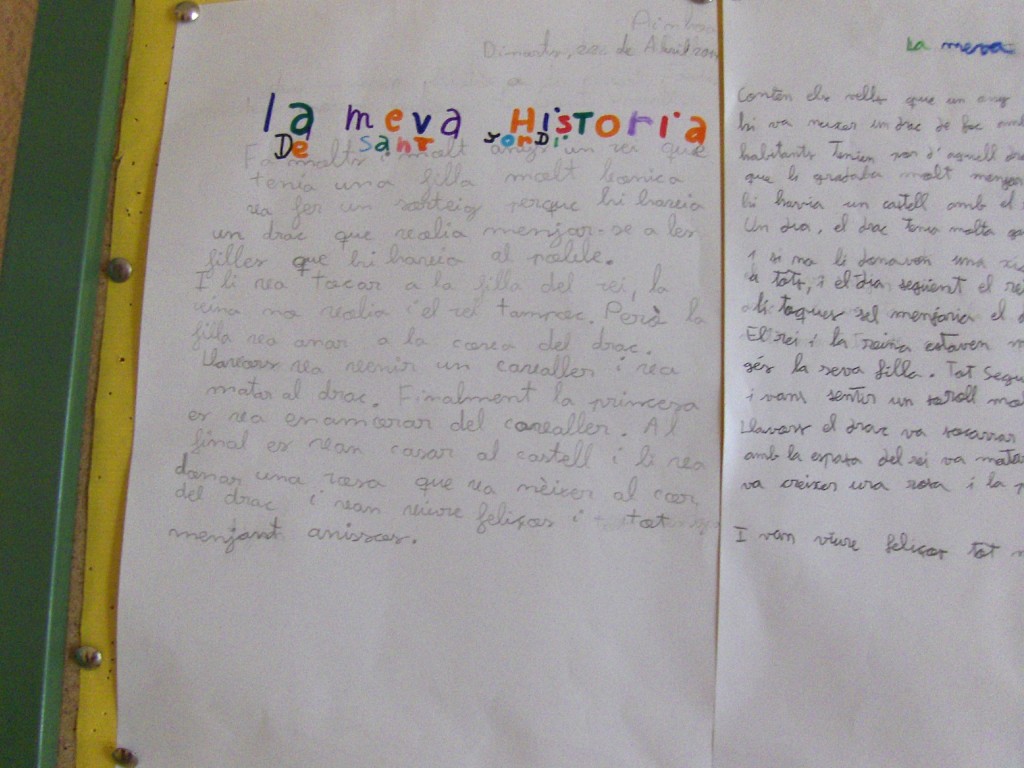 Dimarts, 22 de Abril
la meva Historia
De sant Jordi
Fa molts i molt anys un rei que
tenia una filla molt bonica
va fer un sorteig perque hi havia
un drac que volia menjar-se a les
filles que hi havia al poble.
I li va tocar a la filla del rei, la
reina no volia i el rei tampoc. Però la
filla va anar a la cova del drac.
Llavors va venir un cavaller i va
matar al drac. Finalment la princesa
es va enamorar del cavaller. Al
final es van casar al castell i li va
donar una rosa que va nèixer al cor
del drac i van viure feliços i tot
menjant anissos.
La meva
Conten els vells que un any
hi va neixer un drac de foc amb
habitants Tenien por d'aquell
que li gradaba molt menjar
hi havia un castell amb el
Un dia, el drac tenia molta
i si no li donaven una
a tots, i el dia següent el rei
li toques sel menjaria el
El rei i la reina estaven
gés la seva filla. Tot
i vam sentir un soroll
Llavors el drac va socarrar
amb la espasa del rei va matar
va creixer una rosa i la
I van viure feliços tot